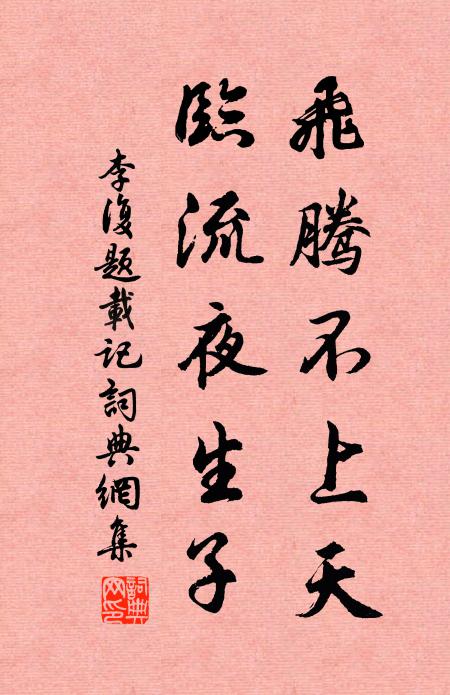 飛騰不上天
臨流夜生子
李復題載記詞典網集
詞典網印